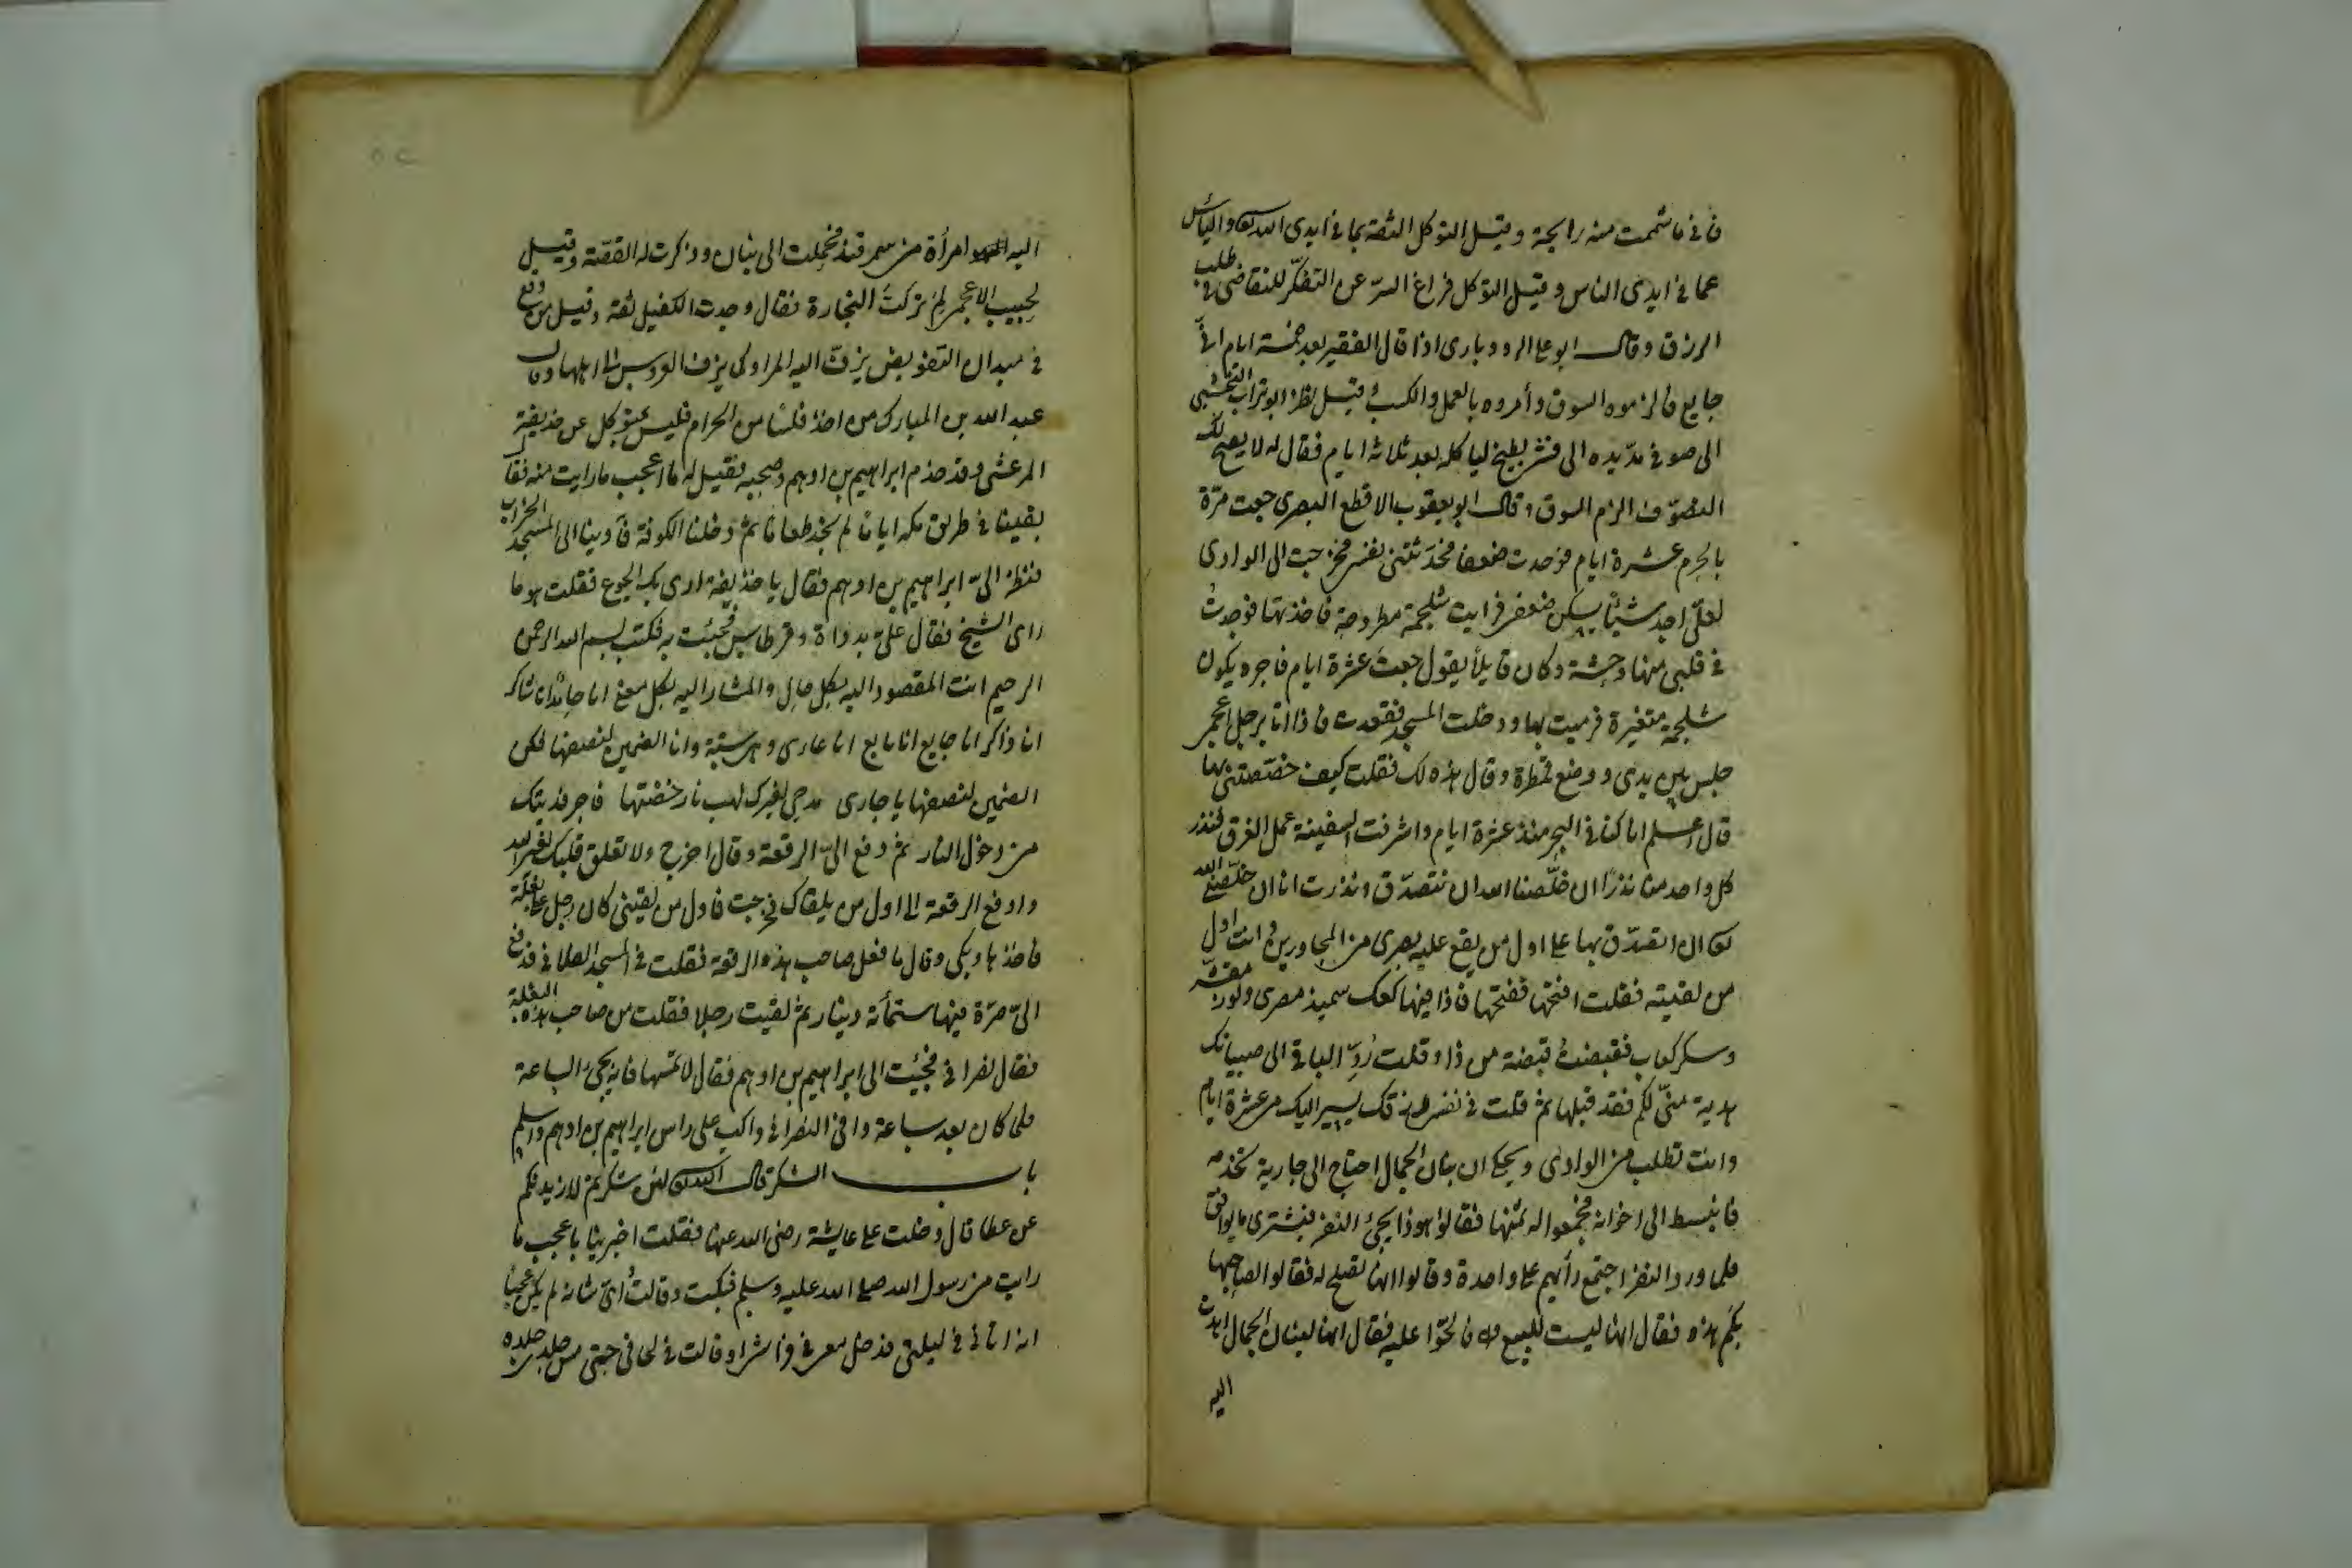 فانى ما شممت منه رايحة وقيل التوكل الثقة بما فى ايدى الله تعالى والياس
عما فى ايدى الناس وقيل التوكل فراغ السرّ عن التفكّر للتقاضى فى طلب
الرزق وقال ابو على الرودبارى اذا قال الفقير بعد خمسة ايام انى
جايع فالزموه السوق وأمروه بالعمل والكسب وقيل نظر ابو تراب النخشبى
الى صوفى مدّ يده الى قشر بطيخ لياكله بعد ثلاثة ايام فقال له لا يصح لك
التصوّف الزم السوق وقال ابو يعقوب الاقطع البصرى جعت مرّة
بالحرم عشرة ايام فوجدت ضعفا فحدّثتنى نفسى فخرجت الى الوادى
لعلّى اجد شيئًا يسكن ضعفى فرايت شلجمة مطروحة فاخذتها فوجدتُ
فى قلبى منها وحشة وكان قايلًا يقول جعتَ عشرة ايام فاخره يكون
شلجمة متغيرة فرميت بها ودخلت المسجد فقعدت فاذا انا برجل اعجمى
جلس بين يدى ووضع قمطرة وقال هذه لك فقلت كيف خصّصتنى بها
قال اعلم انا كنا فى البحر منذ عشرة ايام واشرفت السفينة على الغرق فنذر
كل واحد منا نذرًا ان خلّصنا الله ان نتصدّق ونذرت انا ان خلّصنى الله
تعالى ان اتصدّق بها على اول من يقع عليه بصرى من المجاورين وانت اول
من لقيته فقلت افتحها ففتحها فاذا فيها كعك سميذ مصرى ولوز مقشر
وسكر كعاب فقبضتُ قبضة من ذا وقلت رُدِّ الباقى الى صبيانك
هدية منّى لكم فقد قبلها ثم قلت فى نفسى رزقك يسير اليك من عشرة ايام
وانت تطلب من الوادى ويحكى ان بنان الحمال احتاج الى جارية تخدمه
فانبسط الى اخوانه فجمعوا له ثمنها فقالوا هوذا يجئ النفر فنشترى ما يوافق
فلما ورد النفر اجتمع رأيهم على واحدة وقالوا انها تصلح له فقالوا لصاحبها
بكم هذه فقال انها ليست للبيع فالحّوا عليه فقال انها لبنان الحمال اهدت
اليه
اليه امرأة من سمرقند فحُملت الى بنان وذكرت له القصّة وقيل
لحبيب الاعجمى لِمَ تركتَ التجارة فقال وجدت الكفيل ثقة وقيل من وقع
فى ميدان التفويض يزفّ اليه المراد كما يزف العروس الى اهلها وقال
عبد الله بن المبارك من اخذ فلسًا من الحرام فليس بمتوكل عن حذيفة
المرعشى وقد خدم ابراهيم بن ادهم وصحبه فقيل له ما اعجب ما رايت منه فقال
بقينا فى طريق مكة اياما لم نجد طعاما ثم دخلنا الكوفة فآوينا الى المسجد الخراب
فنظر الىّ ابراهيم بن ادهم فقال يا حذيفة ارى بك الجوع فقلت هو ما
راى الشيخ فقال علىّ بدواة وقرطاس فجئت به فكتب بسم الله الرحمن
الرحيم انت المقصود اليه بكل حال والمشار اليه بكل معنى انا حامد انا شاكر
انا ذاكر انا جايع انا نايع انا عارى وهى ستة وانا الضمين لنصفها فكن
الضمين لنصفها يا جارى مدحى لغيرك لهب نار خضتها فاجر فديتك
من دخول النار ثم دفع الىّ الرقعة وقال اخرج ولا تعلق قلبك لغير الله
وادفع الرقعة الى اول من يلقاك فخرجت فاول من لقينى كان رجل على بغلة
فاخذها وبكى وقال ما فعل صاحب هذه الرقعة فقلت فى المسجد الفلانى فدفع
الىّ صرّة فيها ستمأئة دينار ثم لقيت رجلا فقلت من صاحب هذه البغلة
فقال نصرانى فجئيت الى ابراهيم بن ادهم فقال لا تمسّها فانه يجئ الساعة
فلما كان بعد ساعة وافى النصرانى واكب على راس ابراهيم بن ادهم واسلم
باب الشكر قال الله تعالى لئن شكرتم لازيدنكم
عن عطا قال دخلت على عايشة رضى الله عنها فقلت اخبرينا باعجب ما
رايت من رسول الله صلى الله عليه وسلم فبكت وقالتُ أىّ شانه لم يكن عجبًا
انه اتانى فى ليلتى فدخل معى فى فراشى او قالت فى لحافى حتى مس جلدى جلده